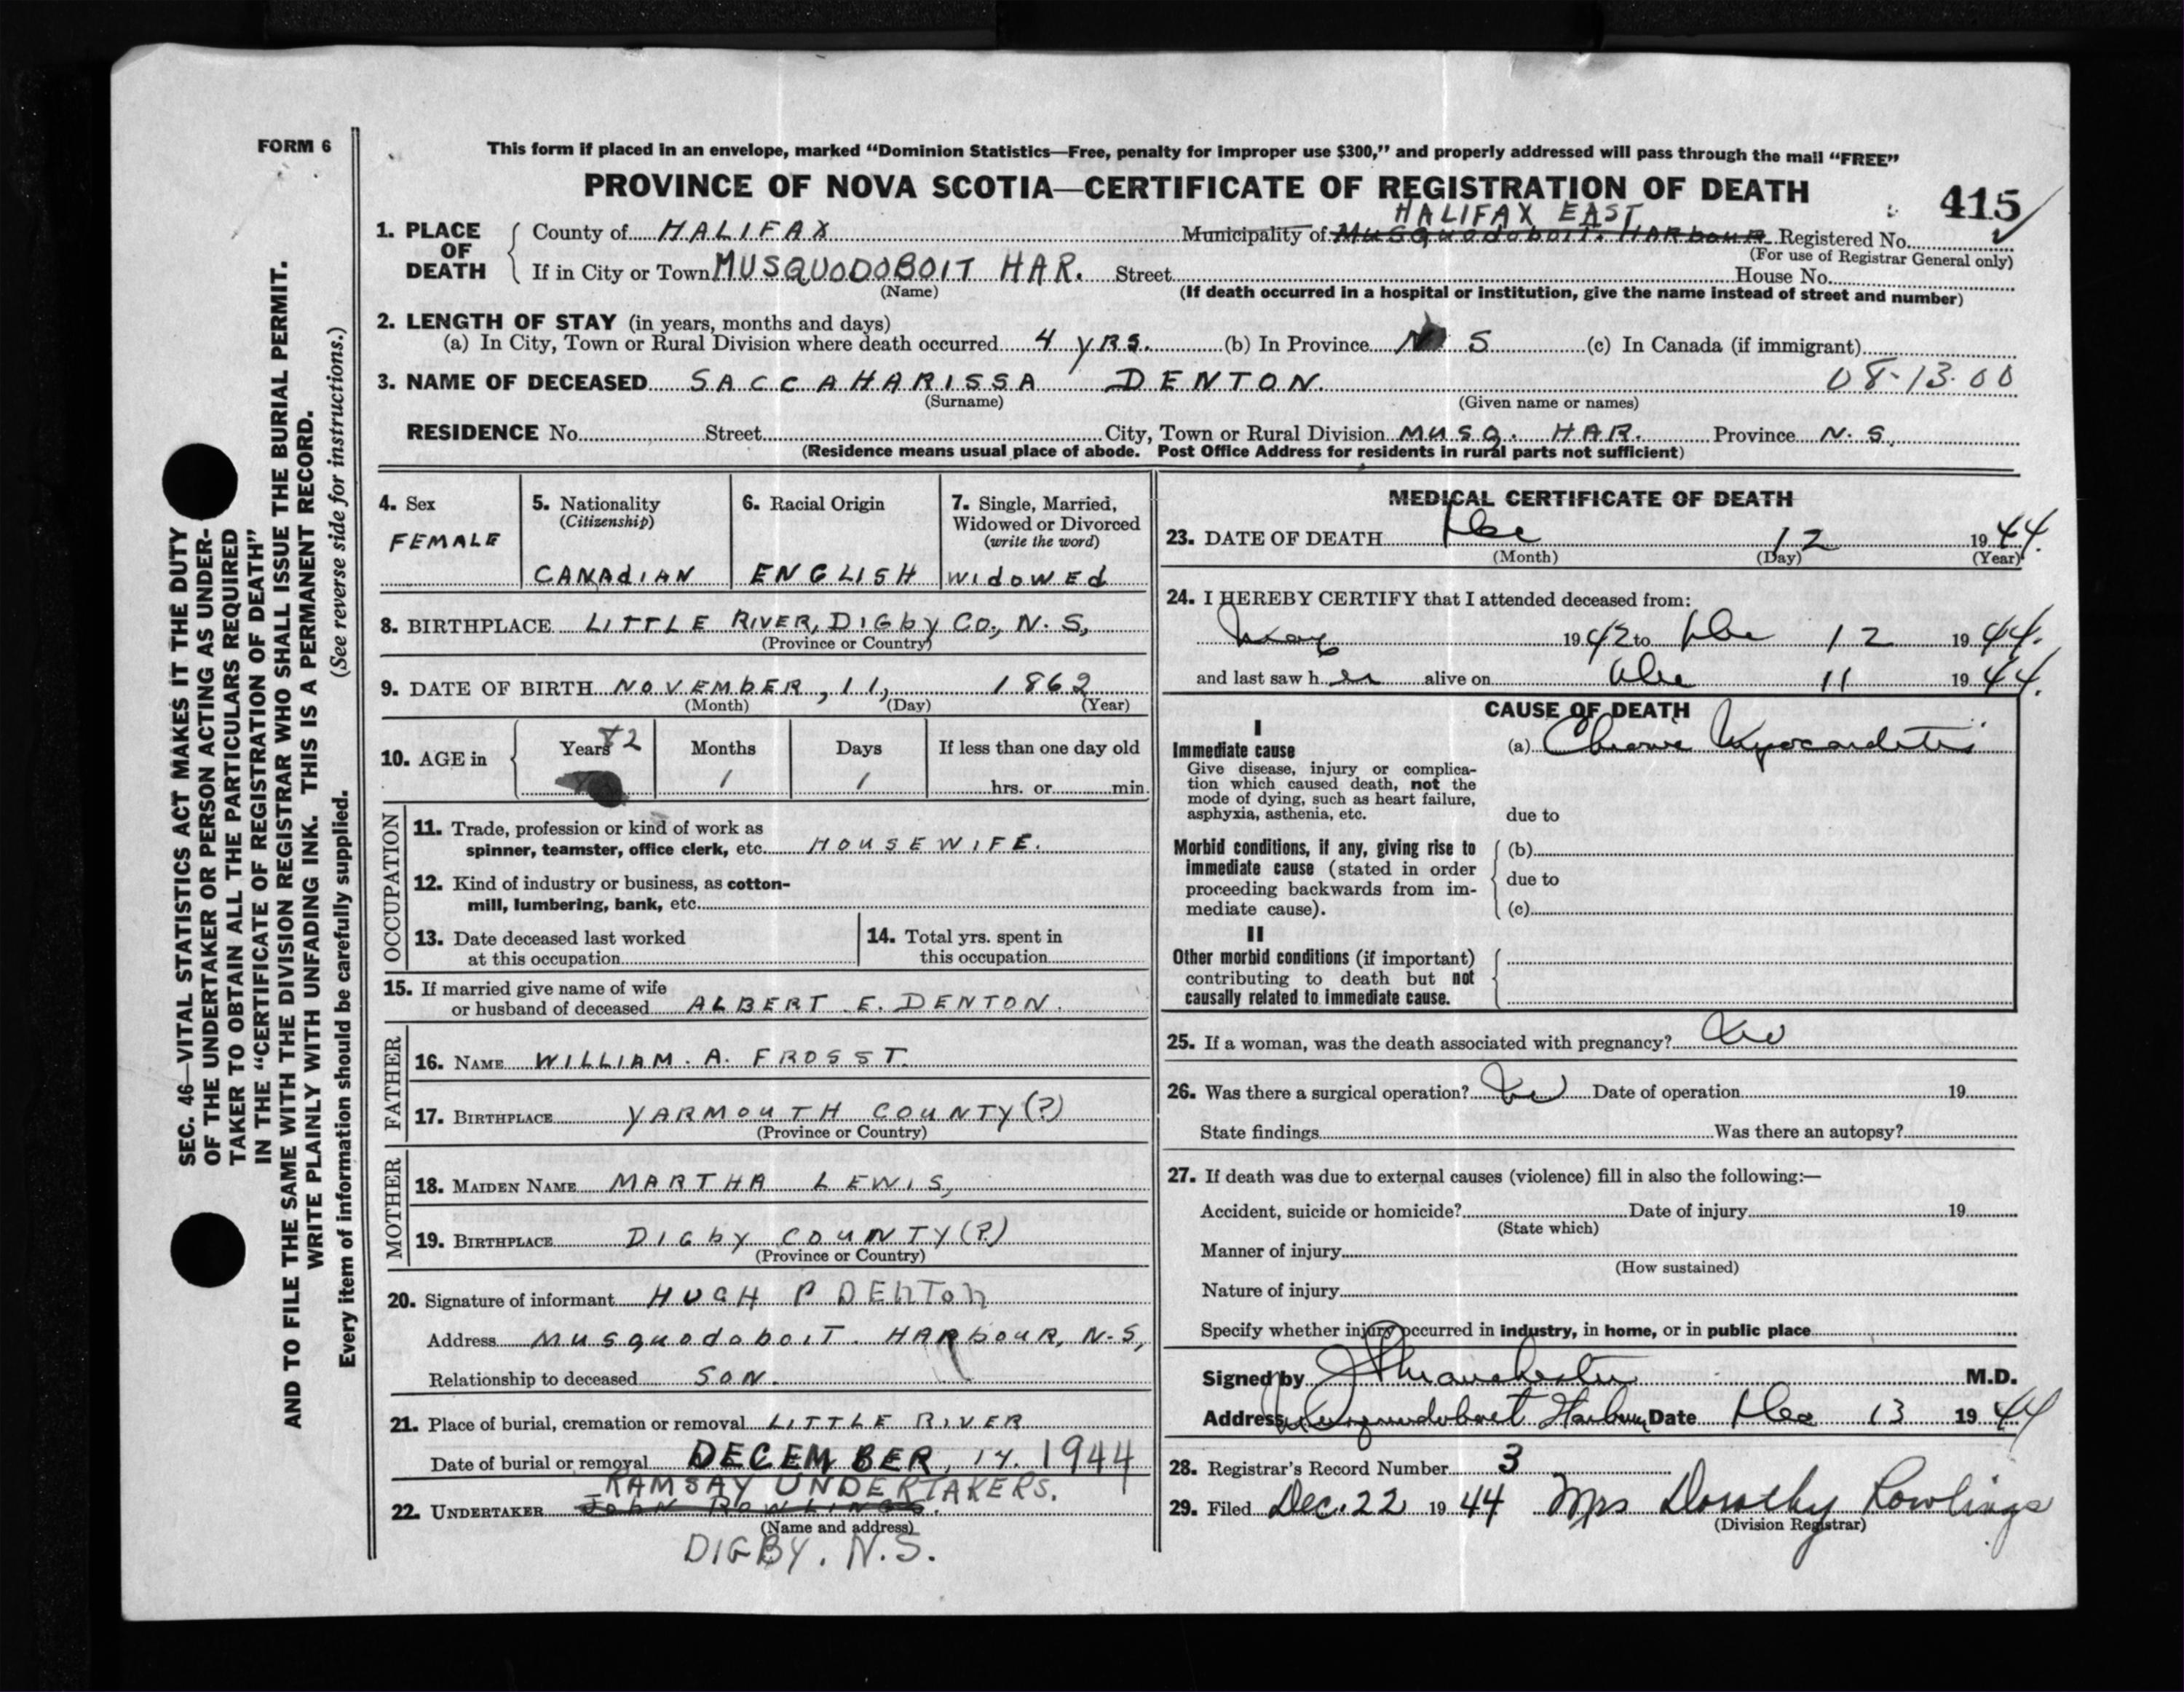 FORM 6
This form if placed in an envelope, marked “Dominion Statistics—Free, penalty for improper use $300,” and properly addressed will pass through the mail “FREE”
PROVINCE OF NOVA SCOTIA—CERTIFICATE OF REGISTRATION OF DEATH
415
SEC. 46—VITAL STATISTICS ACT MAKES IT THE DUTY
OF THE UNDERTAKER OR PERSON ACTING AS UNDER-
TAKER TO OBTAIN ALL THE PARTICULARS REQUIRED
IN THE “CERTIFICATE OF REGISTRATION OF DEATH”
AND TO FILE THE SAME WITH THE DIVISION REGISTRAR WHO SHALL ISSUE THE BURIAL PERMIT.
WRITE PLAINLY WITH UNFADING INK. THIS IS A PERMANENT RECORD.
(See reverse side for instructions.)
Every item of information should be carefully supplied.
HALIFAX EAST
1. PLACE OF DEATH County of HALIFAX Municipality of Musquodoboit. HARbour Registered No.
(For use of Registrar General only)
If in City or Town MUSQUODOBOIT HAR. Street House No.
(Name) (If death occurred in a hospital or institution, give the name instead of street and number)
2. LENGTH OF STAY (in years, months and days)
(a) In City, Town or Rural Division where death occurred 4 YRS. (b) In Province N S (c) In Canada (if immigrant)
3. NAME OF DECEASED SACCAHARISSA DENTON. 08-13-00
(Surname) (Given name or names)
RESIDENCE No. Street City, Town or Rural Division MUSQ. HAR. Province N. S.
(Residence means usual place of abode. Post Office Address for residents in rural parts not sufficient)
4. Sex
FEMALE
5. Nationality
(Citizenship)
CANAdIAN
6. Racial Origin
ENGLISH
7. Single, Married,
Widowed or Divorced
(write the word)
WIdOWEd
8. BIRTHPLACE LITTLE RIVER, DIGbY CO., N. S,
(Province or Country)
9. DATE OF BIRTH NOVEMbER, 11, 1862
(Month) (Day) (Year)
10. AGE in Years 82 Months 1 Days 1 If less than one day old
hrs. or min.
OCCUPATION
11. Trade, profession or kind of work as
spinner, teamster, office clerk, etc. HOUSEWIFE.
12. Kind of industry or business, as cotton-
mill, lumbering, bank, etc.
13. Date deceased last worked
at this occupation
14. Total yrs. spent in
this occupation
15. If married give name of wife
or husband of deceased ALBERT E. DENTON.
FATHER
16. NAME WILLIAM. A. FROSST.
17. BIRTHPLACE YARMOUTH COUNTY(?)
(Province or Country)
MOTHER
18. MAIDEN NAME MARTHA LEWIS,
19. BIRTHPLACE DIGbY COUNTY(?)
(Province or Country)
20. Signature of informant HUGH P DENTON
Address Musquodoboit. HARbOUR, N-S,
Relationship to deceased SON.
21. Place of burial, cremation or removal LITTLE RIVER
Date of burial or removal DECEMBER, 14. 1944
RAMSAY UNDERTAKERS.
22. UNDERTAKER JOHN ROWLINGS.
(Name and address)
DIGBY. N.S.
MEDICAL CERTIFICATE OF DEATH
23. DATE OF DEATH Dec 12 1944.
(Month) (Day) (Year)
24. I HEREBY CERTIFY that I attended deceased from:
May 1942 to Dec 12 1944.
and last saw her alive on Dec 11 1944.
CAUSE OF DEATH
I
Immediate cause (a) Chronic Myocarditis
Give disease, injury or complica-
tion which caused death, not the
mode of dying, such as heart failure,
asphyxia, asthenia, etc. due to
Morbid conditions, if any, giving rise to (b)
immediate cause (stated in order
proceeding backwards from im- due to
mediate cause). (c)
II
Other morbid conditions (if important)
contributing to death but not
causally related to immediate cause.
25. If a woman, was the death associated with pregnancy? No
26. Was there a surgical operation? No Date of operation 19
State findings Was there an autopsy?
27. If death was due to external causes (violence) fill in also the following:—
Accident, suicide or homicide? Date of injury 19
(State which)
Manner of injury
(How sustained)
Nature of injury
Specify whether injury occurred in industry, in home, or in public place
Signed by Manchester M.D.
Address Musquodoboit Harbour Date Dec 13 1944
28. Registrar’s Record Number 3
29. Filed Dec. 22 1944 Mrs Dorothy Rowlings
(Division Registrar)